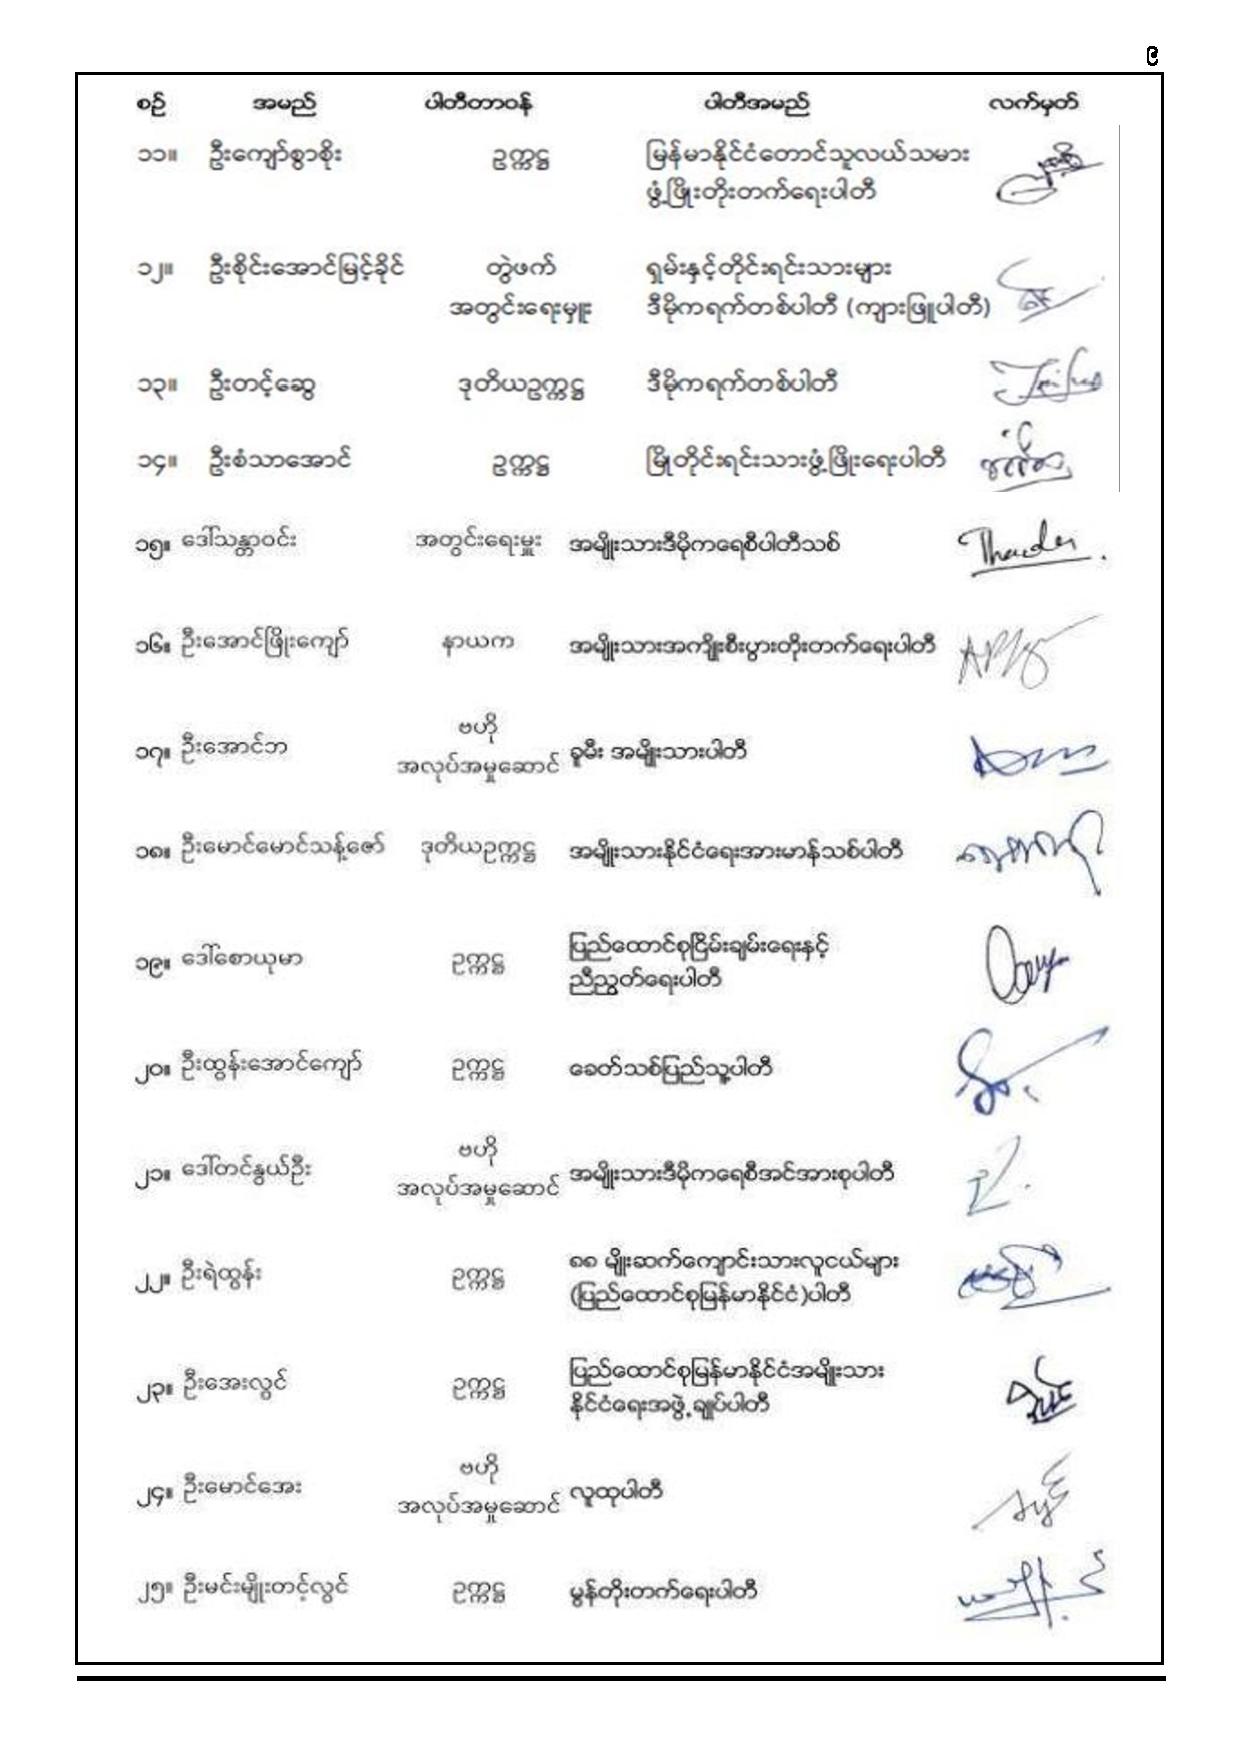 ၉
စဉ် အမည် ပါတီတာဝန် ပါတီအမည် လက်မှတ်
၁၁။ ဦးကျော်စွာစိုး ဥက္ကဋ္ဌ မြန်မာနိုင်ငံတောင်သူလယ်သမား
ဖွံ့ဖြိုးတိုးတက်ရေးပါတီ
၁၂။ ဦးစိုင်းအောင်မြင့်ခိုင် တွဲဖက် ရှမ်းနှင့်တိုင်းရင်းသားများ
အတွင်းရေးမှူး ဒီမိုကရက်တစ်ပါတီ (ကျားဖြူပါတီ)
၁၃။ ဦးတင့်ဆွေ ဒုတိယဥက္ကဋ္ဌ ဒီမိုကရက်တစ်ပါတီ
၁၄။ ဦးစံသာအောင် ဥက္ကဋ္ဌ မြိုတိုင်းရင်းသားဖွံ့ဖြိုးရေးပါတီ
၁၅။ ဒေါ်သန္တာဝင်း အတွင်းရေးမှူး အမျိုးသားဒီမိုကရေစီပါတီသစ်
၁၆။ ဦးအောင်ဖြိုးကျော် နာယက အမျိုးသားအကျိုးစီးပွားတိုးတက်ရေးပါတီ
၁၇။ ဦးအောင်ဘ ဗဟို
အလုပ်အမှုဆောင် ခူမီး အမျိုးသားပါတီ
၁၈။ ဦးမောင်မောင်သန့်ဇော် ဒုတိယဥက္ကဋ္ဌ အမျိုးသားနိုင်ငံရေးအားမာန်သစ်ပါတီ
၁၉။ ဒေါ်စောယုမာ ဥက္ကဋ္ဌ ပြည်ထောင်စုငြိမ်းချမ်းရေးနှင့်
ညီညွတ်ရေးပါတီ
၂၀။ ဦးထွန်းအောင်ကျော် ဥက္ကဋ္ဌ ခေတ်သစ်ပြည်သူ့ပါတီ
၂၁။ ဒေါ်တင်နွယ်ဦး ဗဟို
အလုပ်အမှုဆောင် အမျိုးသားဒီမိုကရေစီအင်အားစုပါတီ
၂၂။ ဦးရဲထွန်း ဥက္ကဋ္ဌ ၈၈ မျိုးဆက်ကျောင်းသားလူငယ်များ
(ပြည်ထောင်စုမြန်မာနိုင်ငံ)ပါတီ
၂၃။ ဦးအေးလွင် ဥက္ကဋ္ဌ ပြည်ထောင်စုမြန်မာနိုင်ငံအမျိုးသား
နိုင်ငံရေးအဖွဲ့ချုပ်ပါတီ
၂၄။ ဦးမောင်အေး ဗဟို
အလုပ်အမှုဆောင် လူထုပါတီ
၂၅။ ဦးမင်းမျိုးတင့်လွင် ဥက္ကဋ္ဌ မွန်တိုးတက်ရေးပါတီ